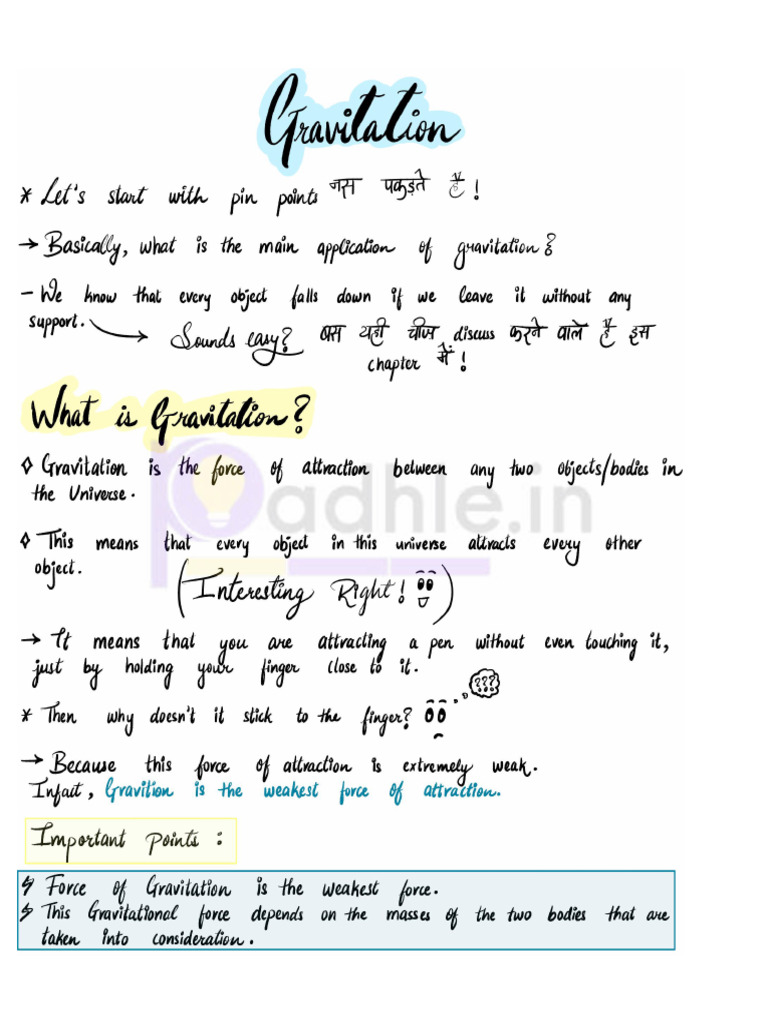 Gravitation
* Let's start with pin points जस पकड़ते हैं !
→ Basically, what is the main application of gravitation?
- We know that every object falls down if we leave it without any
support. → Sounds easy? बस यही चीज discuss करने वाले हैं इस
chapter में !
What is Gravitation?
◊ Gravitation is the force of attraction between any two objects/bodies in
the Universe.
padhle.in
◊ This means that every object in this universe attracts every other
object.
(Interesting Right!)
→ It means that you are attracting a pen without even touching it,
just by holding your finger close to it.
???
* Then why doesn't it stick to the finger?
→ Because this force of attraction is extremely weak.
Infact, Gravition is the weakest force of attraction.
Important points :
Force of Gravitation is the weakest force.
This Gravitational force depends on the masses of the two bodies that are
taken into consideration.